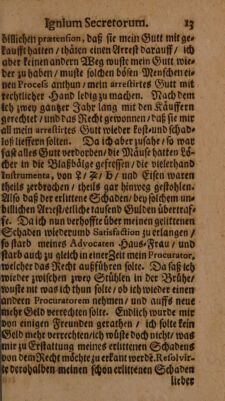 Ignium Secretorum. 23
bißlichen prætension, daß sie mein Gutt mit ge-
kaufft hatten / thäten einen Arrest darauff / ich
aber keinen andern Weg wuste mein Gutt wie-
der zu haben / muste solchen bösen Menschen ei-
nen Process anthun / mein arrestirtes Gutt mit
rechtlicher Hand ledig zu machen. Nach dem
ich zwey gantzer Jahr lang mit den Käuffern
gerechtet / und das Recht gewonnen / daß sie mir
all mein arrestirtes Gutt wieder kost-und schad-
loß lieffern solten. Da ich aber zusahe / so war
fast alles Gutt verdorben / die Mäuse hatten Lö-
cher in die Blaßbälge gefressen / die vielerhand
Instrumenta, von ♀ / ♃ / ♄ / und Eisen waren
theils zerbrochen / theils gar hinweg gestohlen.
Also daß der erlittene Schaden / bey solchem un-
billichen Arrest / etliche tausent Gulden übertraf-
fe. Da ich nun verhoffte über meinen gelittenen
Schaden wiederumb Satisfaction zu erlangen /
so starb meines Advocaten Haus-Frau / und
starb auch zu gleich in einer Zeit mein Procurator,
welcher das Recht außführen solte. Da saß ich
wieder zwischen zwey Stühlen in der Brühe /
wuste nit was ich thun solte / ob ich wieder einen
andern Procuratorem nehmen / und auffs neue
mehr Geld verrechten solte. Endlich wurde mir
von einigen Freunden gerathen / ich solte kein
Geld mehr verrechten / ich wüste doch nicht / was
mir zu Erstattung meines erlittenen Schadens
von dem Recht möchte zu erkant werdē. Resolvir-
te derohalben meinen schon erlittenen Schaden
lieber